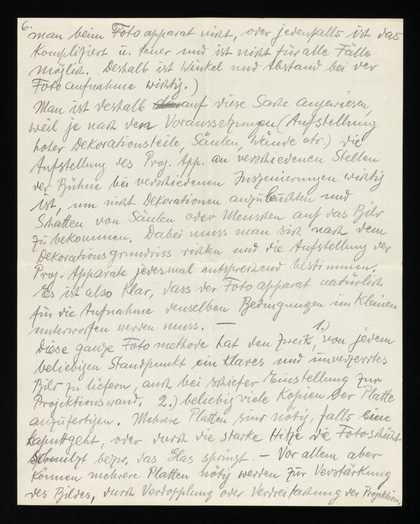 6.
man beim Fotoapparat nicht, oder jedenfalls ist das
kompliziert u. teuer und ist nicht für alle Fälle
möglich. Deshalb ist Winkel und Abstand bei der
Fotoaufnahme wichtig.)
Man ist deshalb auf diese Sache angewiesen,
weil je nach den Voraussetzungen (Aufstellung
hoher Dekorationsteile, Säulen, Wände etc.) die
Aufstellung des Proj. App. an verschiedenen Stellen
der Bühne bei verschiedenen Inszenierungen wichtig
ist, um nicht Dekorationen anzuleuchten und
Schatten von Säulen oder Menschen auf das Bild
zu bekommen. Dabei muss man sich nach dem
Dekorationsgrundriss richten und die Aufstellung der
Proj. Apparate jedesmal entsprechend bestimmen.
Es ist also klar, dass der Fotoapparat natürlich
für die Aufnahme denselben Bedingungen im Kleinen
unterworfen werden muss. —
Diese ganze Fotomethode hat den Zweck, 1.) von jedem
beliebigen Standpunkt ein klares und unverzerrtes
Bild zu liefern, auch bei schiefer Einstellung zur
Projektionswand. 2.) beliebig viele Kopien der Platte
anzufertigen. Mehrere Platten sind nötig, falls eine
kaputtgeht, oder durch die starke Hitze die Fotoschicht
schmilzt bezw. das Glas springt. — Vor allem aber
können mehrere Platten nötig werden zur Verstärkung
des Bildes, durch Verdopplung oder Verdreifachung der Projektion.